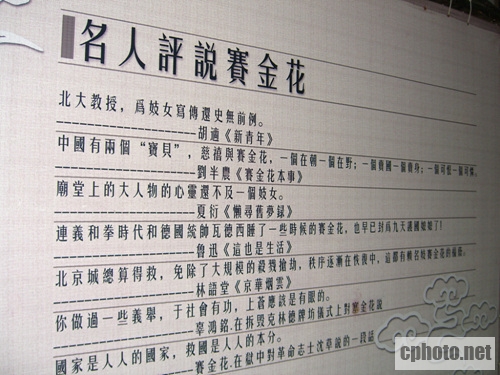 名人評説賽金花
北大教授，爲妓女寫傳還史無前例。
--------------------胡適《新青年》
中國有兩個“寶貝”，慈禧與賽金花，一個在朝一個在野；一個賣國一個賣身；一個可恨一個可憐。
--------------------劉半農《賽金花本事》
廟堂上的大人物的心靈還不及一個妓女。
--------------------夏衍《懶尋舊夢録》
連義和拳時代和德國統帥瓦德西睡了一些時候的賽金花，也早已封爲九天護國娘娘了！
--------------------魯迅《這也是生活》
北京城總算得救，免除了大規模的殺戮搶劫，秩序逐漸在恢復中，這都有賴名妓賽金花的福蔭。
--------------------林語堂《京華烟雲》
你做過一些義舉，于社會有功，上蒼應該是有眼的。
--------------------辜鴻銘.在拆毁克林德牌坊儀式上對賽金花説
國家是人人的國家，救國是人人的本分。
--------------------賽金花.在獄中對革命志士沈草説的一段話
cphoto.net